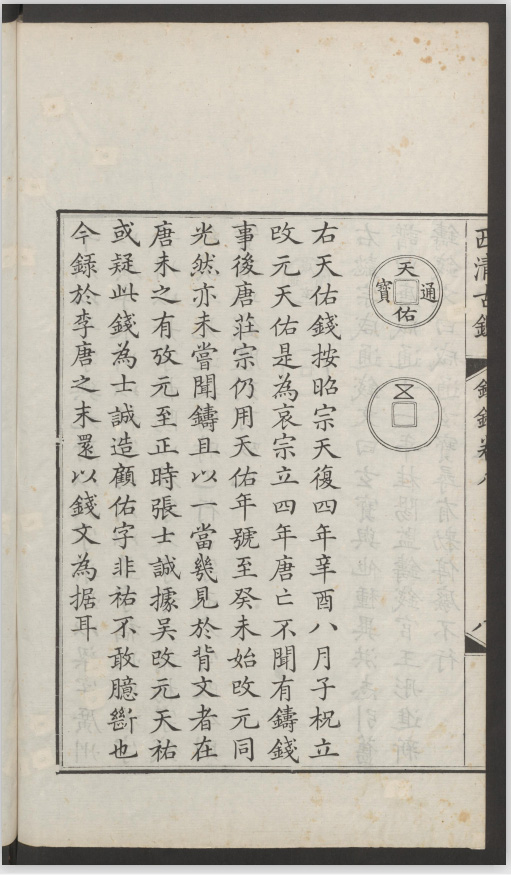 西清古鑑
錢錄卷八
八
天佑通寶
五
右天佑錢按昭宗天復四年辛酉八月子柷立
改元天佑是為哀宗立四年唐亡不聞有鑄錢
事後唐莊宗仍用天佑年號至癸未始改元同
光然亦未嘗聞鑄且以一當幾見於背文者在
唐未之有攷元至正時張士誠據吳改元天祐
或疑此錢為士誠造顧佑字非祐不敢臆斷也
今錄於李唐之末還以錢文為据耳